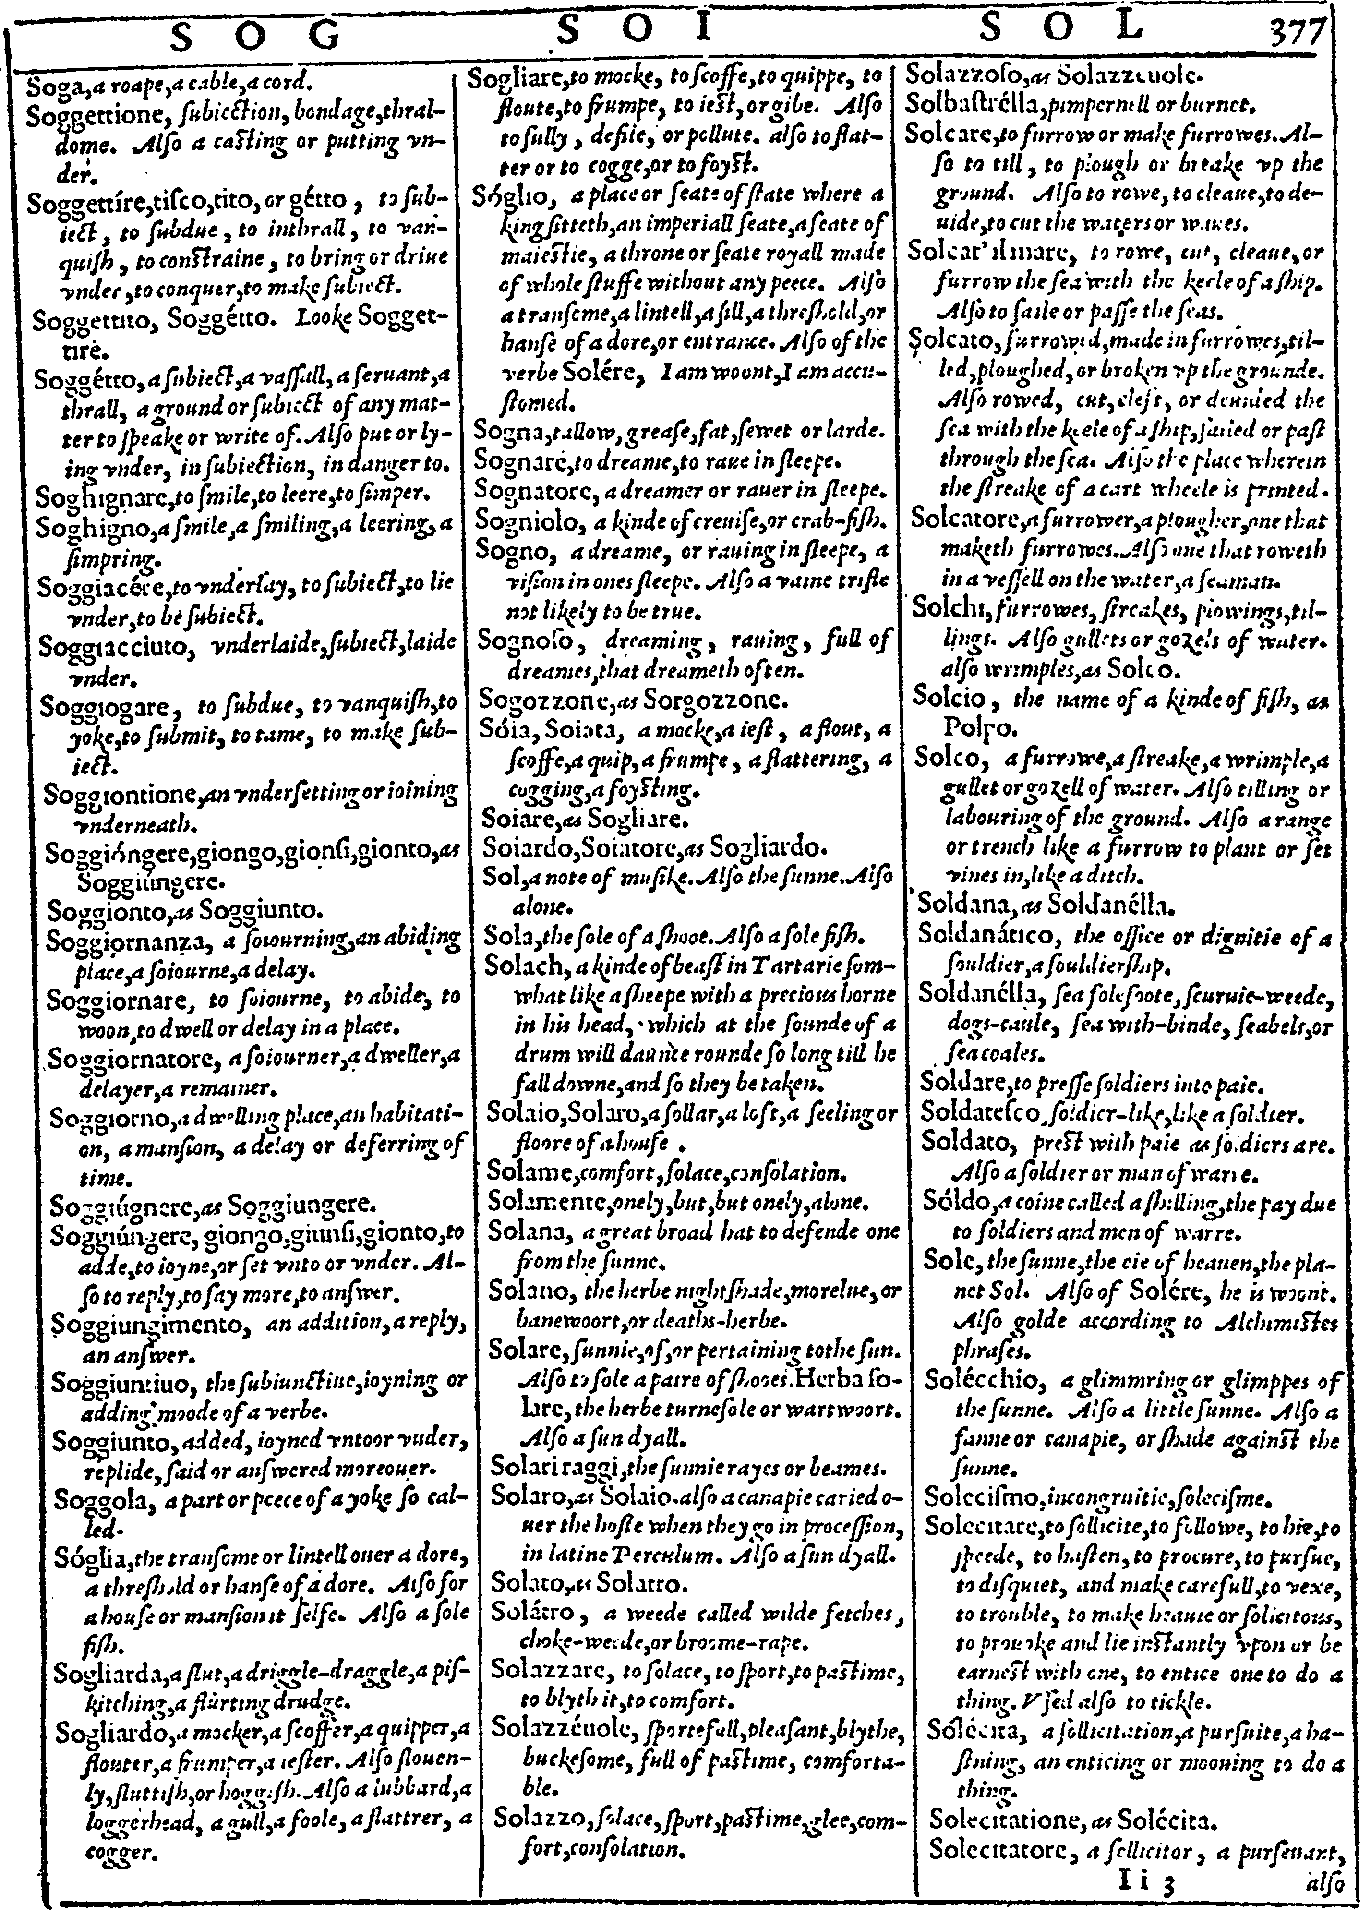 SOG SOI SOL 377
Soga, a roape, a cable, a cord.
Soggettione, ſubiection, bondage, thral-
dome. Alſo a caſting or putting vn-
der.
Soggettíre, tiſco, tito, or gétto, to ſub-
iect, to ſubdue, to inthrall, to van-
quiſh, to conſtraine, to bring or driue
vnder, to conquer, to make ſubiect.
Soggettito, Soggétto. Looke Sogget-
tire.
Soggétto, a ſubiect, a vaſſall, a ſeruant, a
thrall, a ground or ſubiect of any mat-
ter to ſpeake or write of. Alſo put or ly-
ing vnder, in ſubiection, in danger to.
Soghignare, to ſmile, to leere, to ſimper.
Soghigno, a ſmile, a ſmiling, a leering, a
ſimpring.
Soggiacére, to vnderlay, to ſubiect, to lie
vnder, to be ſubiect.
Soggiacciuto, vnderlaide, ſubiect, laide
vnder.
Soggiogare, to ſubdue, to vanquiſh, to
yoke, to ſubmit, to tame, to make ſub-
iect.
Soggiontione, an vnderſetting or ioining
vnderneath.
Soggióngere, giongo, gionſi, gionto, as
Soggiúngere.
Soggionto, as Soggiunto.
Soggiornanza, a ſoiourning, an abiding
place, a ſoiourne, a delay.
Soggiornare, to ſoiourne, to abide, to
woon, to dwell or delay in a place.
Soggiornatore, a ſoiourner, a dweller, a
delayer, a remainer.
Soggiorno, a dwelling place, an habitati-
on, a manſion, a delay or deferring of
time.
Soggiúgnere, as Soggiungere.
Soggiúngere, giongo, giunſi, gionto, to
adde, to ioyne, or ſet vnto or vnder. Al-
ſo to reply, to ſay more, to anſwer.
Soggiungimento, an addition, a reply,
an anſwer.
Soggiuntiuo, the ſubiunctiue, ioyning or
adding moode of a verbe.
Soggiunto, added, ioyned vnto or vnder,
replide, ſaid or anſwered moreouer.
Soggola, a part or peece of a yoke ſo cal-
led.
Sóglia, the tranſome or lintell ouer a dore,
a threſhold or hanſe of a dore. Alſo for
a houſe or manſion it ſelfe. Alſo a ſole
fiſh.
Sogliarda, a ſlut, a driggle-draggle, a piſ-
kitching, a flurting drudge.
Sogliardo, a mocker, a ſcoffer, a quipper, a
flouter, a frumper, a ieſter. Alſo ſlouen-
ly, ſluttiſh, or hoggiſh. Alſo a lubbard, a
loggerhead, a gull, a foole, a flattrer, a
cogger.
Sogliare, to mocke, to ſcoffe, to quippe, to
floute, to frumpe, to ieſt, or gibe. Alſo
to ſully, defile, or pollute. alſo to flat-
ter or to cogge, or to foyſt.
Sóglio, a place or ſeate of ſtate where a
king ſitteth, an imperiall ſeate, a ſeate of
maieſtie, a throne or ſeate royall made
of whole ſtuffe without any peece. Alſo
a tranſome, a lintell, a ſill, a threſhold, or
hanſe of a dore, or entrance. Alſo of the
verbe Solére, I am woont, I am accu-
ſtomed.
Sogna, tallow, greaſe, fat, ſewet or larde.
Sognare, to dreame, to raue in ſleepe.
Sognatore, a dreamer or rauer in ſleepe.
Sogniolo, a kinde of creuiſe, or crab-fiſh.
Sogno, a dreame, or rauing in ſleepe, a
viſion in ones ſleepe. Alſo a vaine trifle
not likely to be true.
Sognoſo, dreaming, rauing, full of
dreames, that dreameth often.
Sogozzone, as Sorgozzone.
Sóia, Soiata, a mocke, a ieſt, a flout, a
ſcoffe, a quip, a frumpe, a flattering, a
cugging, a foyſting.
Soiare, as Sogliare.
Soiardo, Soiatore, as Sogliardo.
Sol, a note of muſike. Alſo the ſunne. Alſo
alone.
Sola, the ſole of a ſhooe. Alſo a ſole fiſh.
Solach, a kinde of beaſt in Tartarie ſom-
what like a ſheepe with a precious horne
in his head, which at the ſounde of a
drum will daunce rounde ſo long till he
fall downe, and ſo they be taken.
Solaio, Solaro, a ſollar, a loft, a ſeeling or
floore of a houſe.
Solame, comfort, ſolace, conſolation.
Solamente, onely, but, but onely, alone.
Solana, a great broad hat to defende one
from the ſunne.
Solano, the herbe nightſhade, morelue, or
banewoort, or deaths-herbe.
Solare, ſunnie, of, or pertaining to the ſun.
Alſo to ſole a paire of ſhooes. Herba ſo-
lare, the herbe turneſole or wartwoort.
Alſo a ſun dyall.
Solari raggi, the ſunnie rayes or beames.
Solaro, as Solaio. alſo a canapie caried o-
uer the hoſte when they go in proceſſion,
in latine Perculum. Alſo a ſun dyall.
Solato, as Solatro.
Solátro, a weede called wilde fetches,
choke-weede, or broome-rape.
Solazzare, to ſolace, to ſport, to paſtime,
to blyth it, to comfort.
Solazzéuole, ſportefull, pleaſant, blythe,
buckeſome, full of paſtime, comforta-
ble.
Solazzo, ſolace, ſport, paſtime, glee, com-
fort, conſolation.
Solazzoſo, as Solazzeuole.
Solbaſtrélla, pimpernell or burnet.
Solcare, to furrow or make furrowes. Al-
ſo to till, to plough or breake vp the
ground. Alſo to rowe, to cleaue, to de-
uide, to cut the waters or waues.
Solcar' il mare, to rowe, cut, cleaue, or
furrow the ſea with the keele of a ſhip.
Alſo to ſaile or paſſe the ſeas.
Solcato, furrowed, made in furrowes, til-
led, ploughed, or broken vp the grounde.
Alſo rowed, cut, cleft, or deuided the
ſea with the keele of a ſhip, ſailed or paſt
through the ſea. Alſo the place wherein
the ſtreake of a cart wheele is printed.
Solcatore, a furrower, a plougher, one that
maketh furrowes. Alſo one that roweth
in a veſſell on the water, a ſeaman.
Solchi, furrowes, ſtreakes, plowings, til-
lings. Alſo gullets or gozels of water.
alſo wrimples, as Solco.
Solcio, the name of a kinde of fiſh, as
Polpo.
Solco, a furrowe, a ſtreake, a wrimple, a
gullet or gozell of water. Alſo tilling or
labouring of the ground. Alſo a range
or trench like a furrow to plant or ſet
vines in, like a ditch.
Soldana, as Soldanélla.
Soldanático, the office or dignitie of a
ſouldier, a ſouldierſhip.
Soldanélla, ſea folefoote, ſcuruie-weede,
dogs-caule, ſea with-binde, ſeabels, or
ſea coales.
Soldare, to preſſe ſoldiers into paie.
Soldateſco, ſoldier-like, like a ſoldier.
Soldato, preſt with paie as ſoldiers are.
Alſo a ſoldier or man of warre.
Sóldo, a coine called a ſhilling, the pay due
to ſoldiers and men of warre.
Sole, the ſunne, the eie of heauen, the pla-
net Sol. Alſo of Solére, he is woont.
Alſo golde according to Alchimiſtes
phraſes.
Solécchio, a glimmring or glimppes of
the ſunne. Alſo a little ſunne. Alſo a
fanne or canapie, or ſhade againſt the
ſunne.
Soleciſmo, incongruitie, ſoleciſme.
Solecitare, to ſollicite, to followe, to hie, to
ſpeede, to haſten, to procure, to purſue,
to diſquiet, and make carefull, to vexe,
to trouble, to make heauie or ſolicitous,
to prouoke and lie inſtantly vpon or be
earneſt with one, to entice one to do a
thing. Vſed alſo to tickle.
Solécita, a ſollicitation, a purſuite, a ha-
ſtning, an enticing or moouing to do a
thing.
Solecitatione, as Solécita.
Solecitatore, a ſollicitor, a purſeuant,
Ii 3 alſo